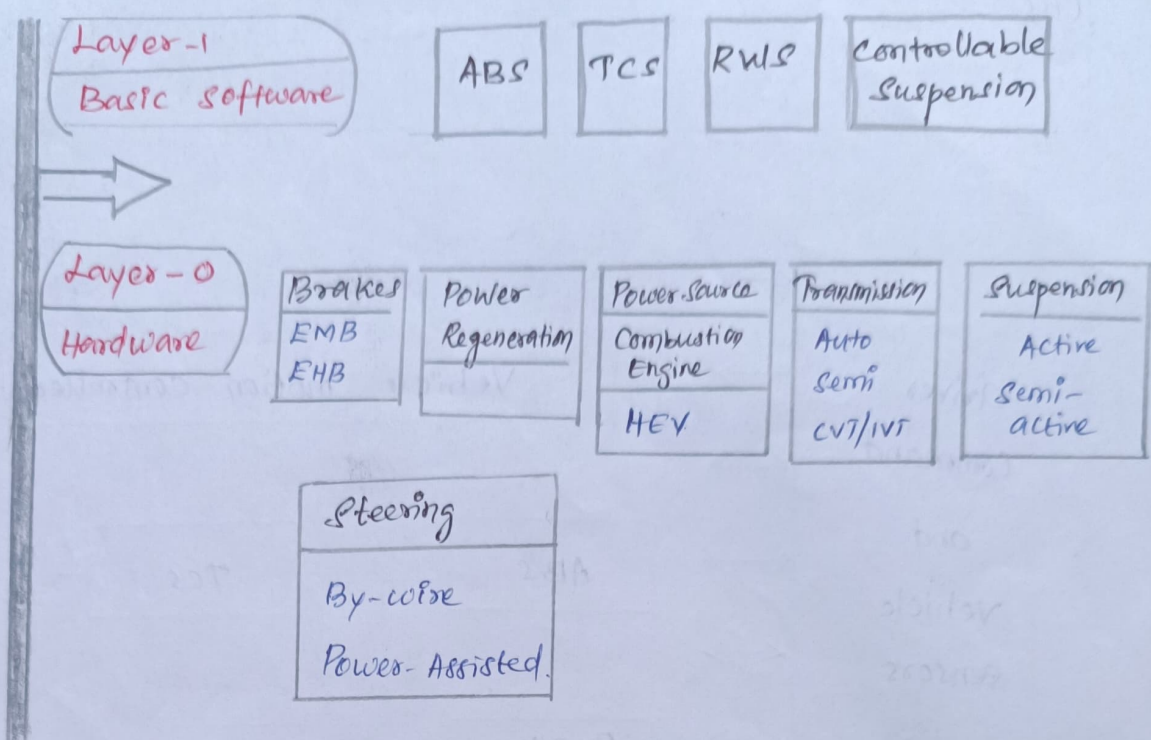 Layer-1
Basic Software
ABS
TCS
RWS
Controllable
Suspension
Layer-0
Hardware
Brakes
EMB
EHB
Power
Regeneration
Power Source
Combustion
Engine
HEV
Transmission
Auto
Semi
CVT/IVT
Suspension
Active
Semi-
active
Steering
By-wire
Power-Assisted.